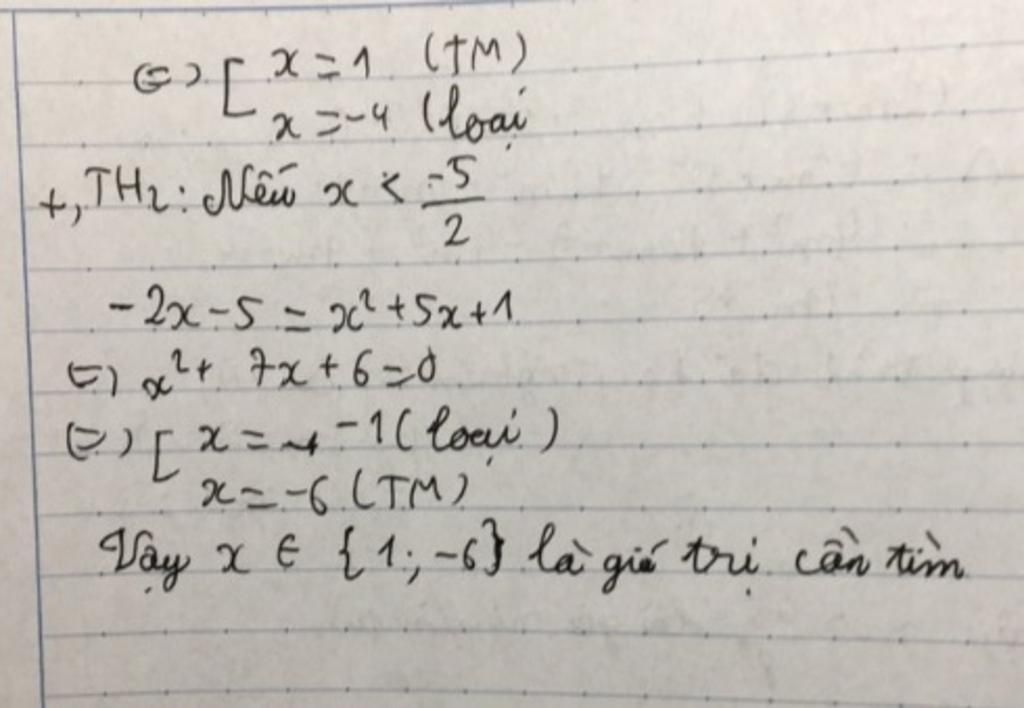 ⇔ [ x = 1 (TM)
x = -4 (loại
+, TH2: Nếu x < -5/2
-2x - 5 = x² + 5x + 1
⇔ x² + 7x + 6 = 0
⇔ [ x = -1 (loại)
x = -6 (TM)
Vậy x ∈ {1; -6} là giá trị cần tìm